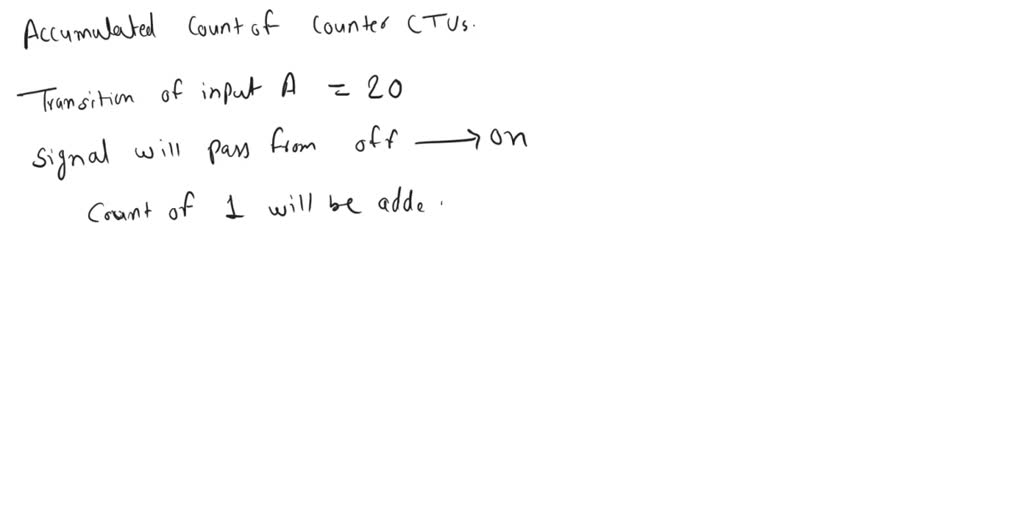 Accumulated Count of Counter CTUs.
Transition of input A = 20
Signal will pass from off → on
Count of 1 will be adde.